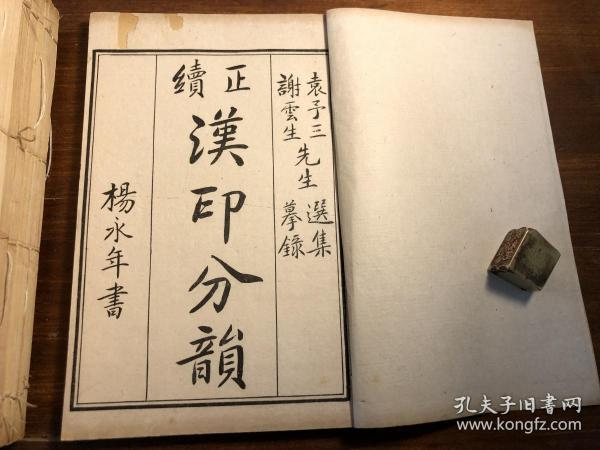 袁予三先生選集
謝雲生 摹錄
正續
漢印分韻
楊永年書
孔夫子旧书网
www.kongfz.com